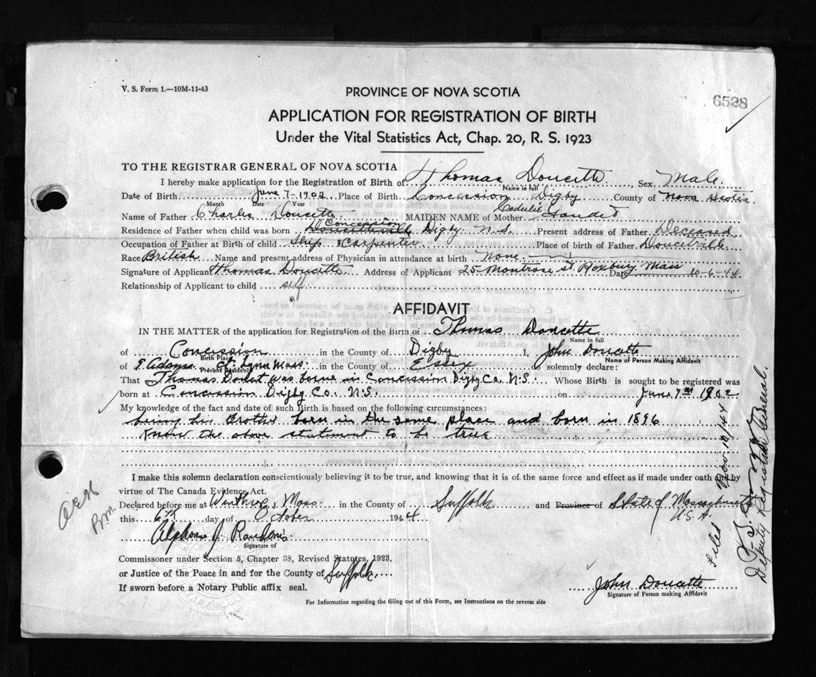 V. S. Form 1.—10M-11-43
6528
PROVINCE OF NOVA SCOTIA
APPLICATION FOR REGISTRATION OF BIRTH
Under the Vital Statistics Act, Chap. 20, R. S. 1923
TO THE REGISTRAR GENERAL OF NOVA SCOTIA
I hereby make application for the Registration of Birth of Thomas Doucette Sex Male
Name in full
Date of Birth June 7-1902 Place of Birth Concession Digby County of Nova Scotia
Month Day Year
Name of Father Charles Doucette MAIDEN NAME of Mother
Concession
Residence of Father when child was born Doucetteville Digby N.S. Present address of Father Deceased
Occupation of Father at Birth of child Ship Carpenter Place of birth of Father Doucetville
Race British Name and present address of Physician in attendance at birth none
Signature of Applicant Thomas Doucette Address of Applicant 25 Montrose St. Roxbury Mass Date 10-6-44
Relationship of Applicant to child self
AFFIDAVIT
IN THE MATTER of the application for Registration of the Birth of Thomas Doucette
Name in full
of Concession in the County of Digby I, John Doucette
Birth Place Name of Person Making Affidavit
of 5 Adams St Lynn Mass. in the County of Essex do solemnly declare:
Present Residence
That Thomas Doucet was borne in Concession Digby Co. N.S. Whose Birth is sought to be registered was
born at Concession Digby Co. N.S. on June 7th 1902
My knowledge of the fact and date of such Birth is based on the following circumstances:
being his Brother born in the same place and born in 1896
Know the above statement to be true
I make this solemn declaration conscientiously believing it to be true, and knowing that it is of the same force and effect as if made under oath by
virtue of The Canada Evidence Act.
Declared before me at Winthrop, Mass. in the County of Suffolk and Province of State of Massachusetts
U.S.A.
this 6th day of October 1944
Alphonse J.
Signature of
Commissioner under Section 3, Chapter 38, Revised Statutes, 1923,
or Justice of the Peace in and for the County of Suffolk
If sworn before a Notary Public affix seal.
John Doucette
Signature of Person making Affidavit
For Information regarding the filling out of this Form, see Instructions on the reverse side
Filed Nov. 10/44
Deputy Registrar General.